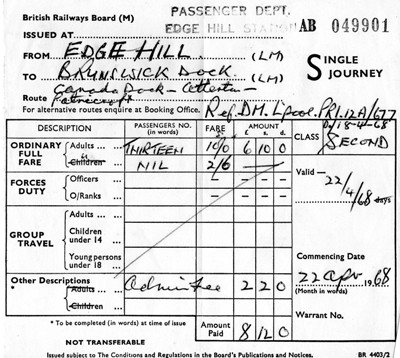 British Railways Board (M)
PASSENGER DEPT.
EDGE HILL STATION
AB 049901
ISSUED AT
FROM EDGE HILL. (LM)
TO BRUNSWICK DOCK. (LM)
SINGLE JOURNEY
Canada Dock - Atterton -
Route Patricroft
For alternative routes enquire at Booking Office.
Ref. DM. L'pool. PR1.12A/677
D/18-4-68
DESCRIPTION PASSENGERS NO. (in words) FARE AMOUNT £ s. d. CLASS SECOND
ORDINARY FULL FARE
Adults ... THIRTEEN 10/0 6 10 0
Children ... NIL 2/6
Valid —
22/4/68 days
FORCES DUTY
Officers ...
O/Ranks ...
GROUP TRAVEL
Adults ...
Children under 14 ...
Young persons under 18 ...
Commencing Date
22 apr 1968
(Month in words)
Other Descriptions
* Adults ... Admin Fee 2 2 0
Children ...
Warrant No.
* To be completed (in words) at time of issue
Amount Paid 8 12 0
NOT TRANSFERABLE
BR 4403/2
Issued subject to The Conditions and Regulations in the Board's Publications and Notices.